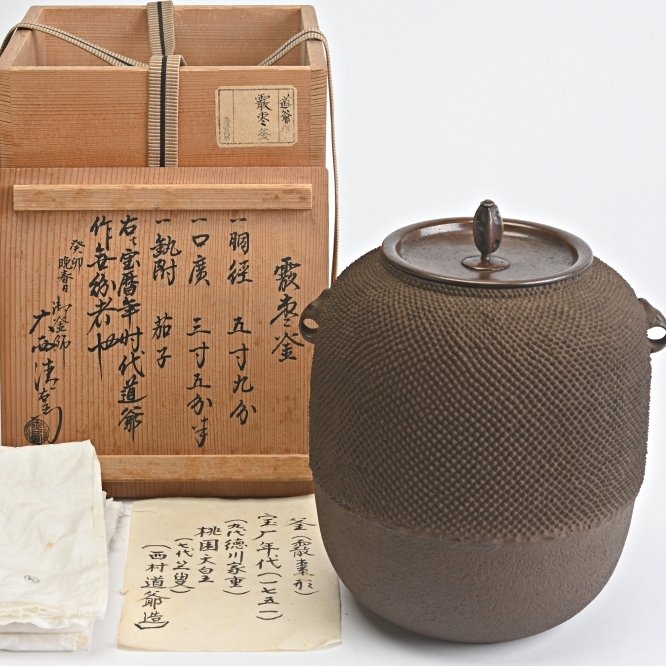 道爺作
霰棗釜
霰棗釜
一胴径 五寸九分
一口廣 三寸五分半
一執附 茄子
右ハ宝暦年时代道爺
作無紛者也
癸卯晩春日
御釜師
大西清右衛門
釜(霰棗形)
宝厂年代(一七五一)
(九代徳川家重)
桃園天白王
(七代と叟)
(西村道爺造)